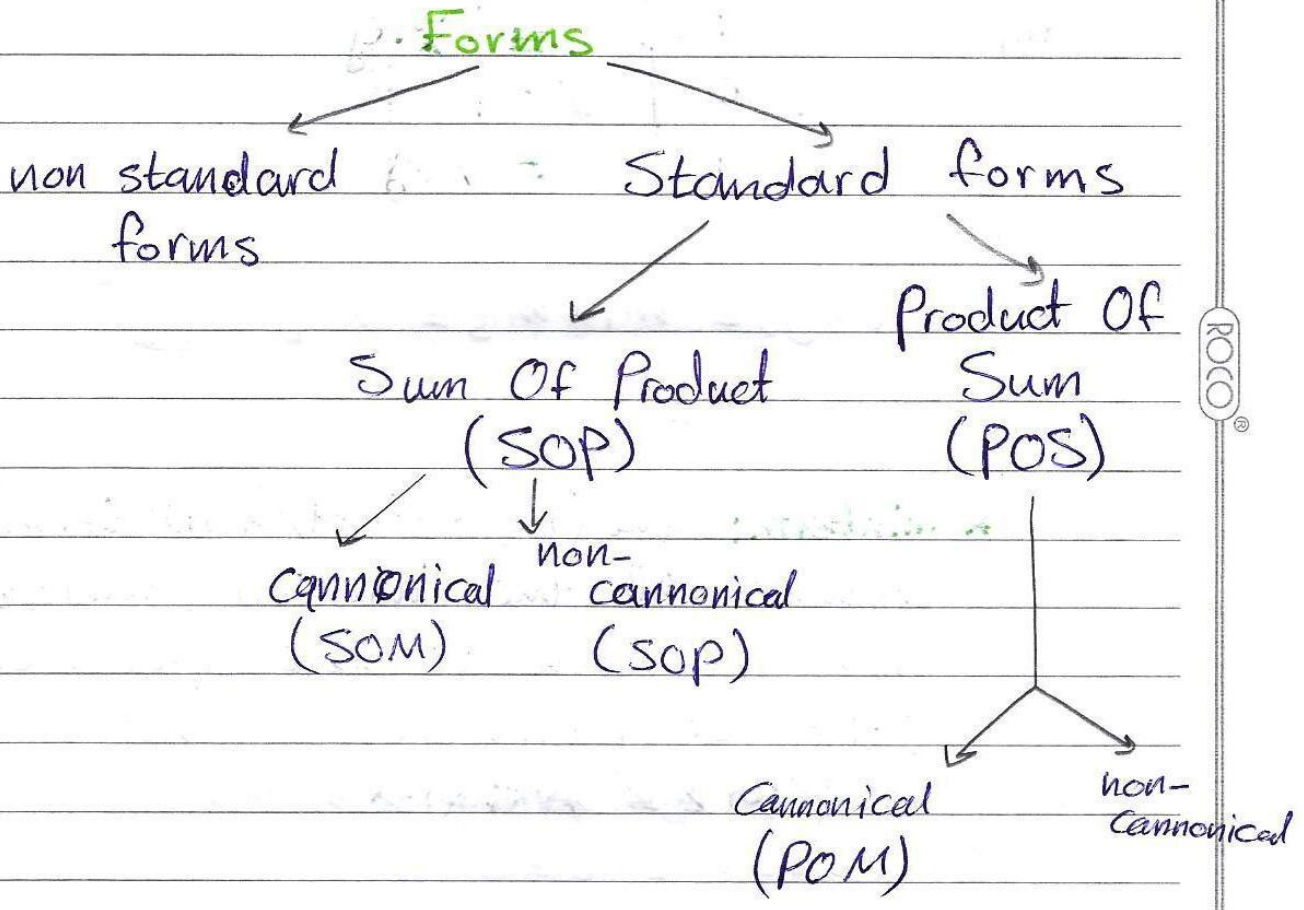 Forms
non standard
forms
Standard forms
Sum Of Product
(SOP)
Product Of
Sum
(POS)
Cannonical
(SOM)
non-
cannonical
(SOP)
Cannonical
(POM)
non-
Cannonical
ROCO®